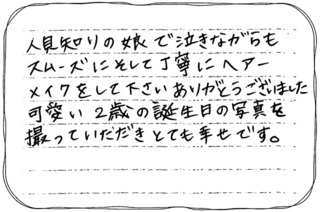 人見知りの娘で泣きながらも
スムーズにそして丁寧にヘアー
メイクをして下さいありがとうございました
可愛い2歳の誕生日の写真を
撮っていただきとても幸せです。